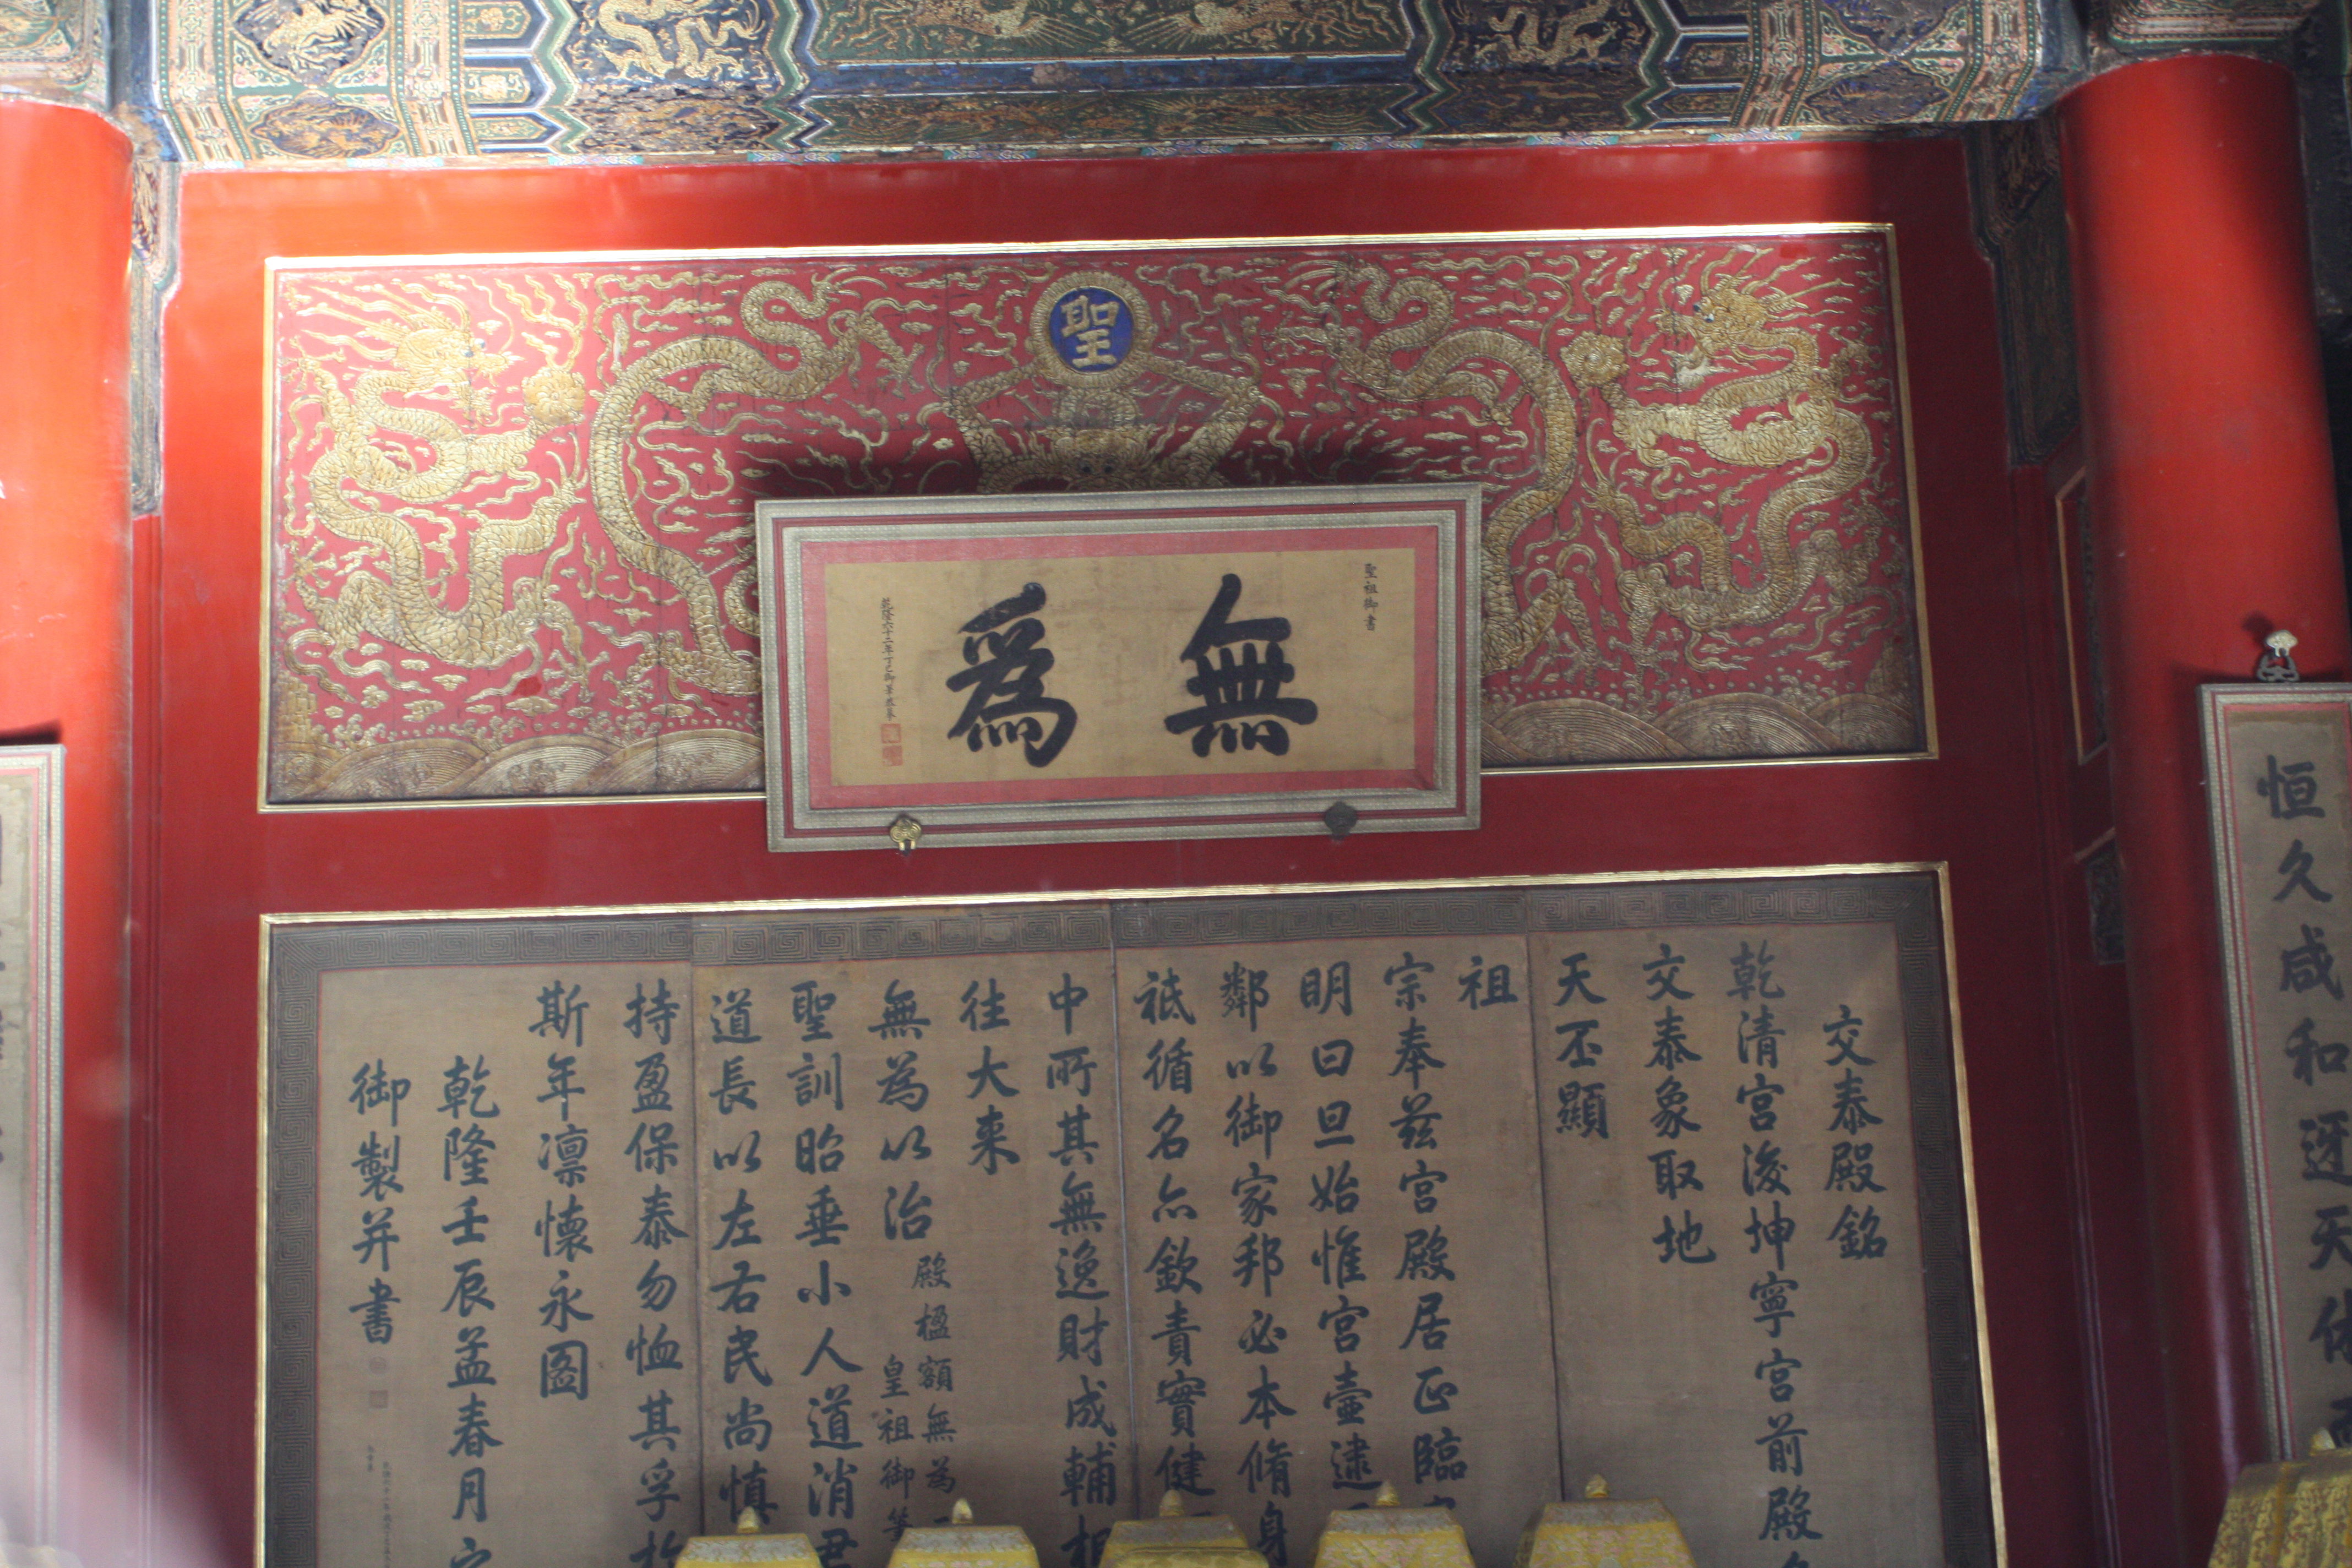 聖
聖祖御書
無爲
交泰殿銘
乾清宫後坤寧宫前殿名
交泰象取地
天丕顯
祖
宗奉兹宫殿居正臨
明曰旦始惟宫壼逮
鄰以御家邦必本脩身
祗循名亦欽責實健
中所其無逸財成輔相
往大来
無為以治
殿楹額無為
皇祖御筆
聖訓昭垂小人道消君
道長以左右民尚慎
持盈保泰勿恤其孚於
斯年凛懐永圖
乾隆壬辰孟春月
御製并書
恒久咸和迓天休